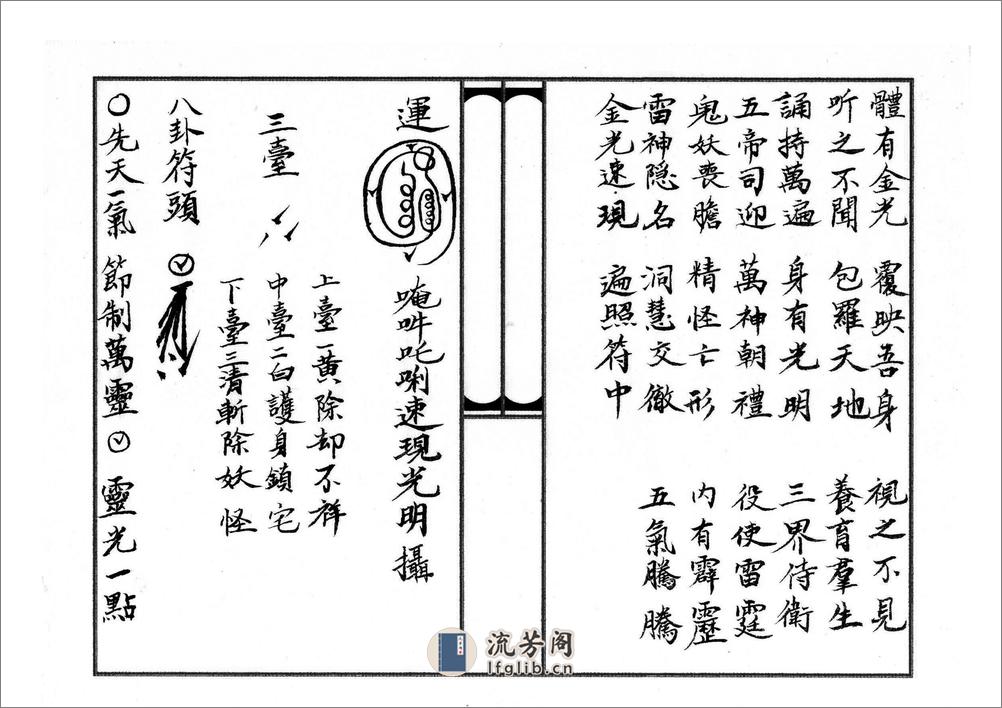 體有金光 覆映吾身 視之不見
听之不聞 包羅天地 養育羣生
誦持萬遍 身有光明 三界侍衛
五帝司迎 萬神朝禮 役使雷霆
鬼妖喪膽 精怪亡形 內有霹靂
雷神隐名 洞慧交徹 五氣騰騰
金光速現 遍照符中
運 唵吽吒唎速現光明攝
三臺
上臺一黃除却不祥
中臺二白護身鎮宅
下臺三清斬除妖怪
八卦符頭
○先天一氣 節制萬靈 靈光一點
流芳阁
lfglib.cn